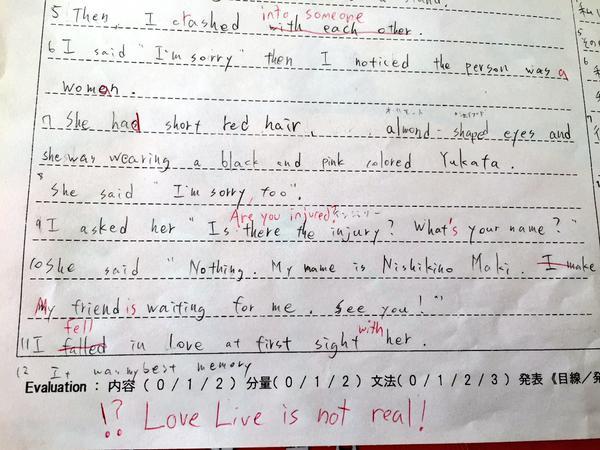 5 Then, I crashed with each other.
into someone
6 I said "I'm sorry" then I noticed the person was a
woman.
7 She had short red hair, almond-shaped eyes and
she was wearing a black and pink colored Yukata.
8
She said "I'm sorry, too".
Are you injured?
9 I asked her "Is there the injury? What's your name?"
10 She said "Nothing. My name is Nishikino Maki. I make
My friend is waiting for me. See you!"
fell with
11 I falled in love at first sight her.
12 It was my best memory
Evaluation : 内容 ( 0 / 1 / 2 ) 分量( 0 / 1 / 2 ) 文法( 0 / 1 / 2 / 3 ) 発表《目線/発
!? Love Live is not real!